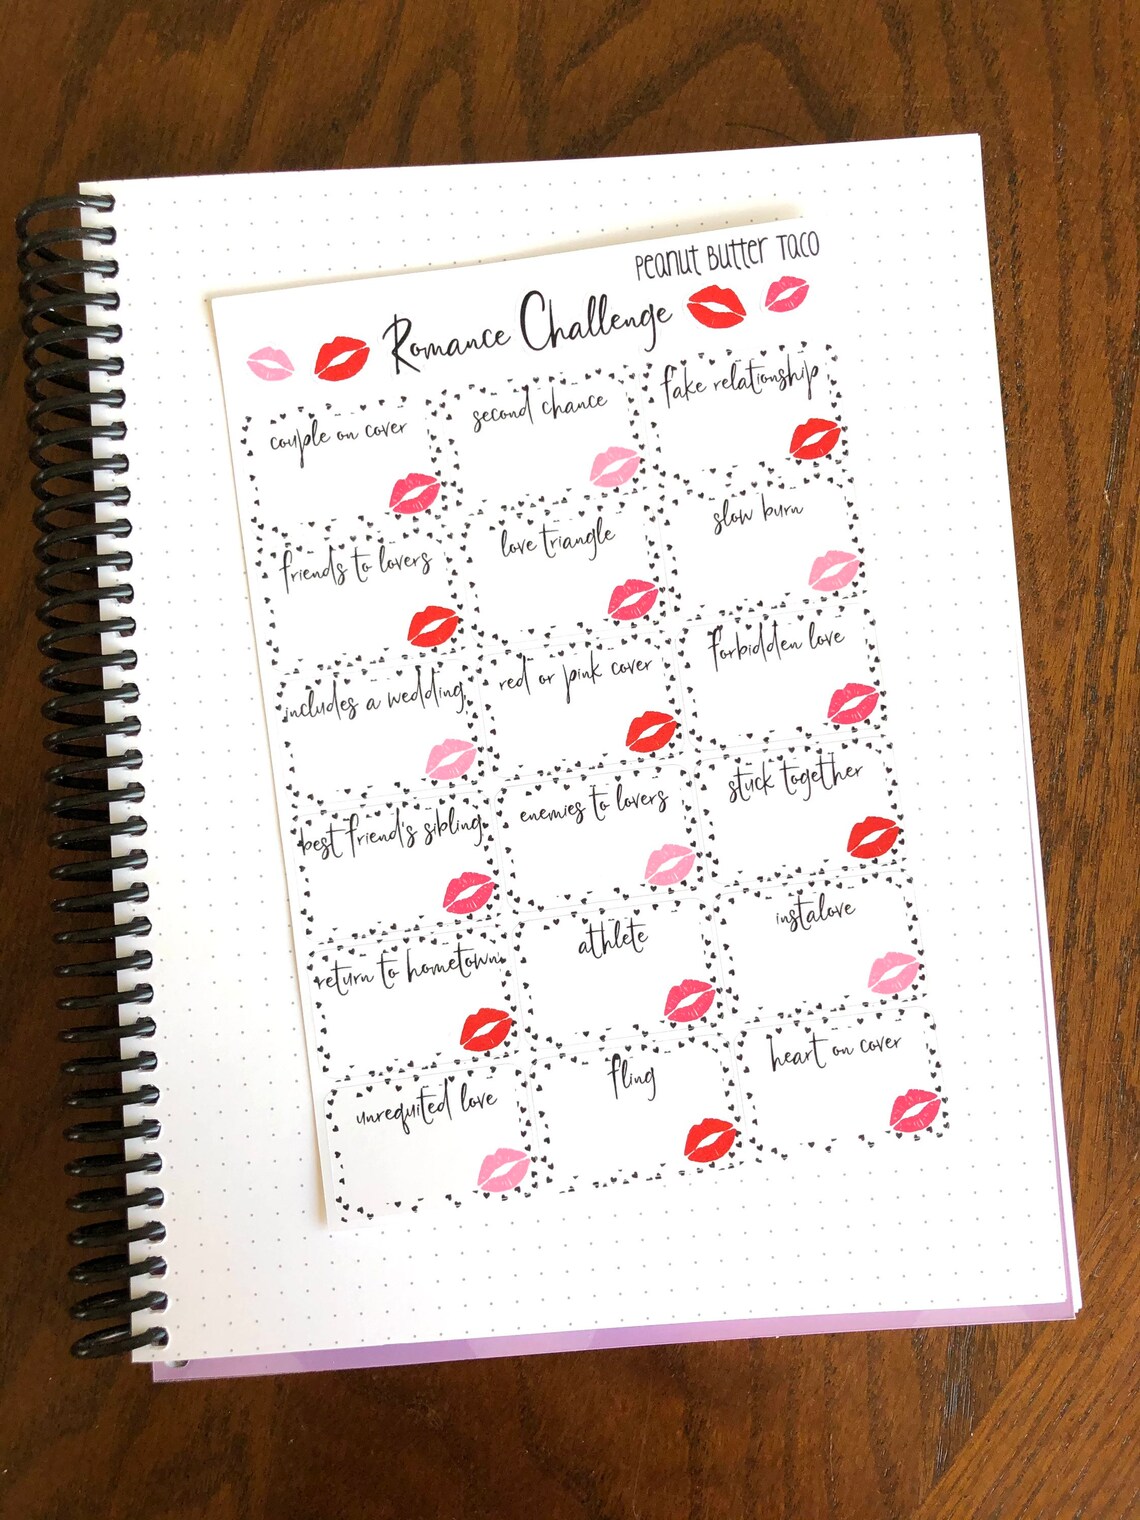 Peanut Butter Taco
Romance Challenge
couple on cover
second chance
fake relationship
friends to lovers
love triangle
slow burn
includes a wedding
red or pink cover
forbidden love
best friend's sibling
enemies to lovers
stuck together
return to hometown
athlete
instalove
unrequited love
fling
heart on cover